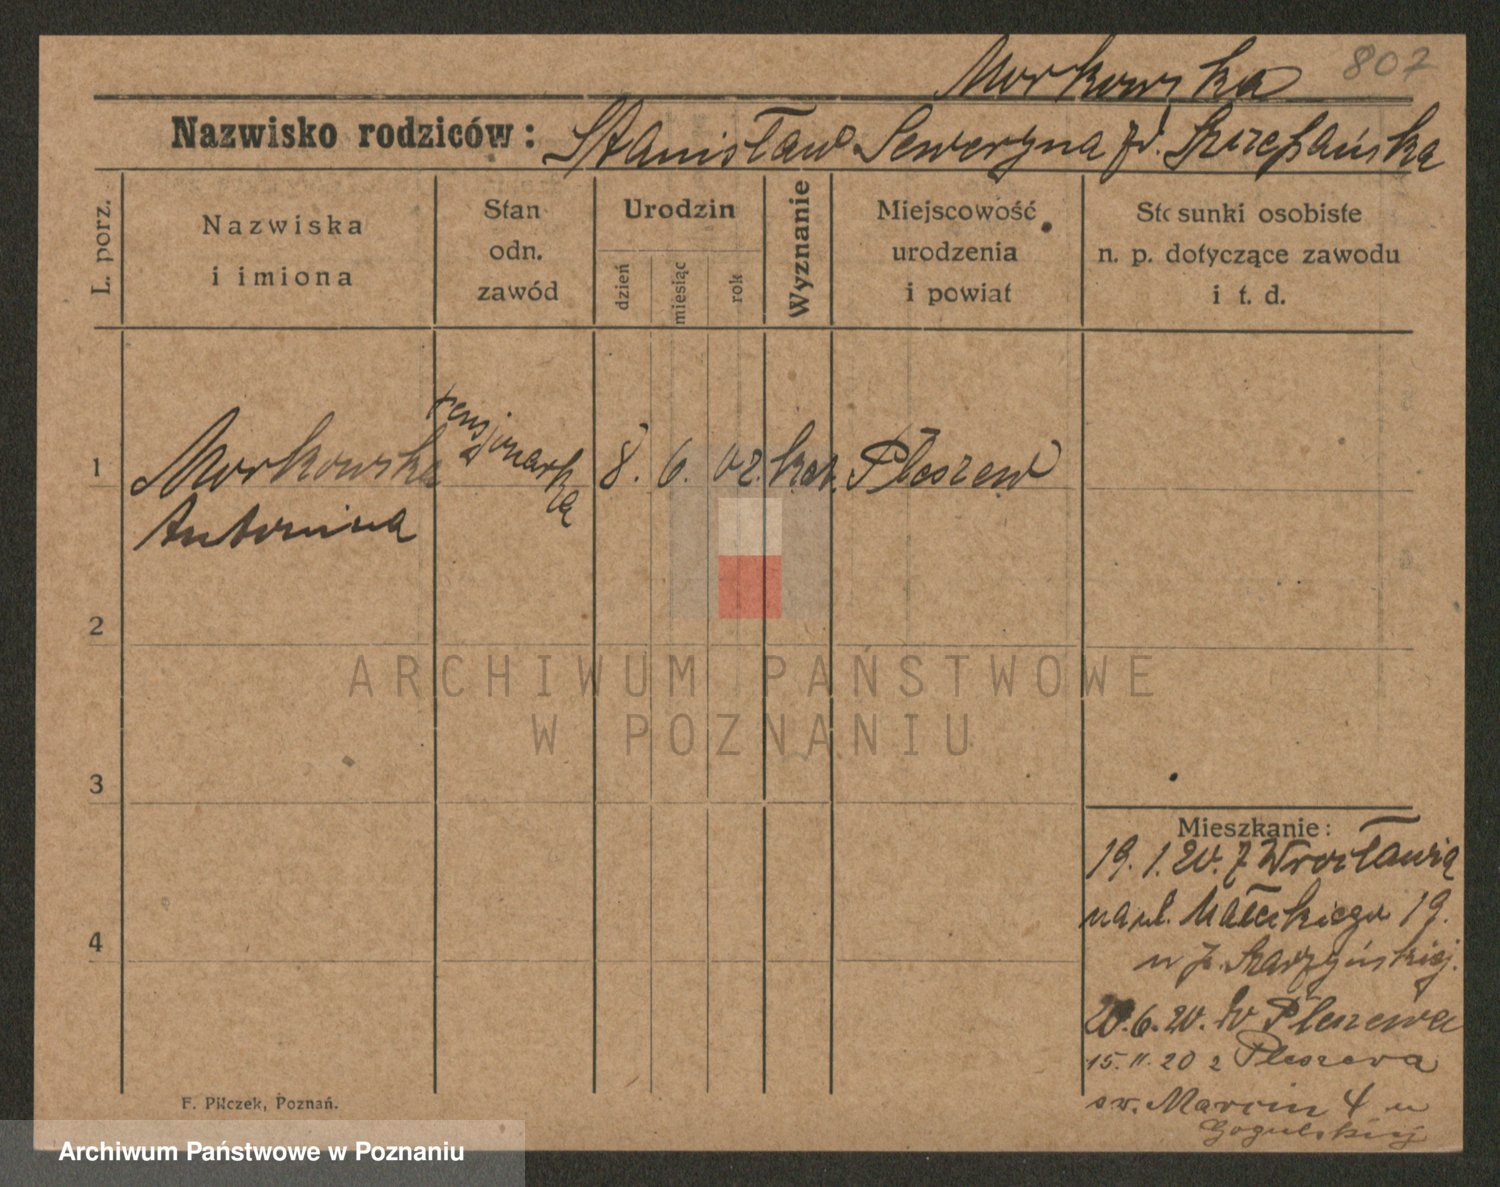 Morkowska 807
Nazwisko rodziców: Stanisław Seweryna zd. Szczepańska
L. porz.
Nazwiska
i imiona
Stan
odn.
zawód
Urodzin
dzień
miesiąc
rok
Wyznanie
Miejscowość
urodzenia
i powiat
Stosunki osobiste
n. p. dotyczące zawodu
i t. d.
1 Morkowska pensjonarka 8. 6. 02. kat. Pleszew
Antonina
2
ARCHIWUM PAŃSTWOWE
W POZNANIU
3
4
Mieszkanie:
19. 1. 20. z Wrocławia
na ul. Małeckiego 19.
u p.
20.6.20. do Pleszewa
15.11.20 z Pleszewa
św. Marcin 4 u
Gogulskiej
F. Pilczek, Poznań.
Archiwum Państwowe w Poznaniu